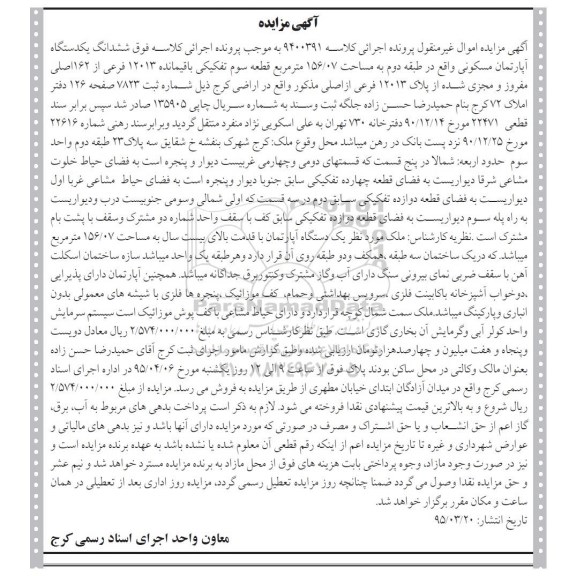 آگهی مزایده
آگهی مزایده اموال غیرمنقول پرونده اجرائی کلاسه ۹۴۰۰۳۹۱ به موجب پرونده اجرائی کلاسه فوق ششدانگ یکدستگاه
آپارتمان مسکونی واقع در طبقه دوم به مساحت ۱۵۶/۰۷ مترمربع قطعه سوم تفکیکی باقیمانده ۱۲۰۱۳ فرعی از ۱۶۲اصلی
مفروز و مجزی شده از پلاک ۱۲۰۱۳ فرعی ازاصلی مذکور واقع در اراضی کرج ذیل شماره ثبت ۷۸۲۳ صفحه ۱۲۶ دفتر
املاک ۷۲ کرج بنام حمیدرضا حسن زاده جلگه ثبت وسند به شماره سریال چاپی ۱۳۵۹۰۵ صادر شد سپس برابر سند
قطعی ۲۲۴۷۱ مورخ ۹۰/۱۲/۱۴ دفترخانه ۷۳۰ تهران به علی اسکویی نژاد منفرد منتقل گردید وبرابرسند رهنی شماره ۲۲۶۱۶
مورخ ۹۰/۱۲/۲۵ نزد پست بانک در رهن میباشد محل وقوع ملک: کرج شهرک بنفشه خ شقایق سه پلاک۲۳ طبقه دوم واحد
سوم حدود اربعه: شمالا در پنج قسمت که قسمتهای دومی وچهارمی غربیست دیوار و پنجره است به فضای حیاط خلوت
مشاعی شرقا دیواریست به فضای قطعه چهارده تفکیکی سابق جنوبا دیوار وپنجره است به فضای حیاط مشاعی غربا اول
دیواریست به فضای قطعه دوازده تفکیکی سابق دوم در سه قسمت که اولی شمالی وسومی جنوبیست درب ودیواریست
به راه پله سوم دیواریست به فضای قطعه دوازده تفکیکی سابق کف با سقف واحد شماره دو مشترک وسقف با پشت بام
مشترک است .نظریه کارشناس: ملک مورد نظر یک دستگاه آپارتمان با قدمت بالای بیست سال به مساحت ۱۵۶/۰۷ مترمربع
میباشد که دریک ساختمان سه طبقه ،همکف ودو طبقه روی آن قرار دارد وهرطبقه یک واحد میباشد سازه ساختمان اسکلت
آهن با سقف ضربی نمای بیرونی سنگ دارای آب وگاز مشترک وکنتوربرق جداگانه میباشد. همچنین آپارتمان دارای پذیرایی
،دوخواب آشپزخانه باکابینت فلزی ،سرویس بهداشتی وحمام، کف موزائیک ،پنجره ها فلزی با شیشه های معمولی بدون
انباری وپارکینگ میباشد.ملک سمت شمال کوچه قراردارد و دارای حیاط مشاعی با کف پوش موزائیک است سیستم سرمایش
واحد کولر آبی وگرمایش آن بخاری گازی است. طبق نظرکارشناس رسمی به مبلغ ۲/۵۷۴/۰۰۰/۰۰۰ ریال معادل دویست
وپنجاه و هفت میلیون و چهارصدهزارتومان ارزیابی شده وطبق گزارش مامور اجرای ثبت کرج آقای حمیدرضا حسن زاده
بعنوان مالک وکالتی در محل ساکن بودند پلاک فوق از ساعت ۹ الی ۱۲ روز یکشنبه مورخ ۹۵/۰۴/۰۶ در اداره اجرای اسناد
رسمی کرج واقع در میدان آزادگان ابتدای خیابان مطهری از طریق مزایده به فروش می رسد. مزایده از مبلغ ۲/۵۷۴/۰۰۰/۰۰۰
ریال شروع و به بالاترین قیمت پیشنهادی نقدا فروخته می شود. لازم به ذکر است پرداخت بدهی های مربوط به آب، برق،
گاز اعم از حق انشعاب و یا حق اشتراک و مصرف در صورتی که مورد مزایده دارای آنها باشد و نیز بدهی های مالیاتی و
عوارض شهرداری و غیره تا تاریخ مزایده اعم از اینکه رقم قطعی آن معلوم شده یا نشده باشد به عهده برنده مزایده است و
نیز در صورت وجود مازاد، وجوه پرداختی بابت هزینه های فوق از محل مازاد به برنده مزایده مسترد خواهد شد و نیم عشر
و حق مزایده نقدا وصول می گردد ضمنا چنانچه روز مزایده تعطیل رسمی گردد، مزایده روز اداری بعد از تعطیلی در همان
ساعت و مکان مقرر برگزار خواهد شد.
تاریخ انتشار: ۹۵/۰۳/۲۰
معاون واحد اجرای اسناد رسمی کرج